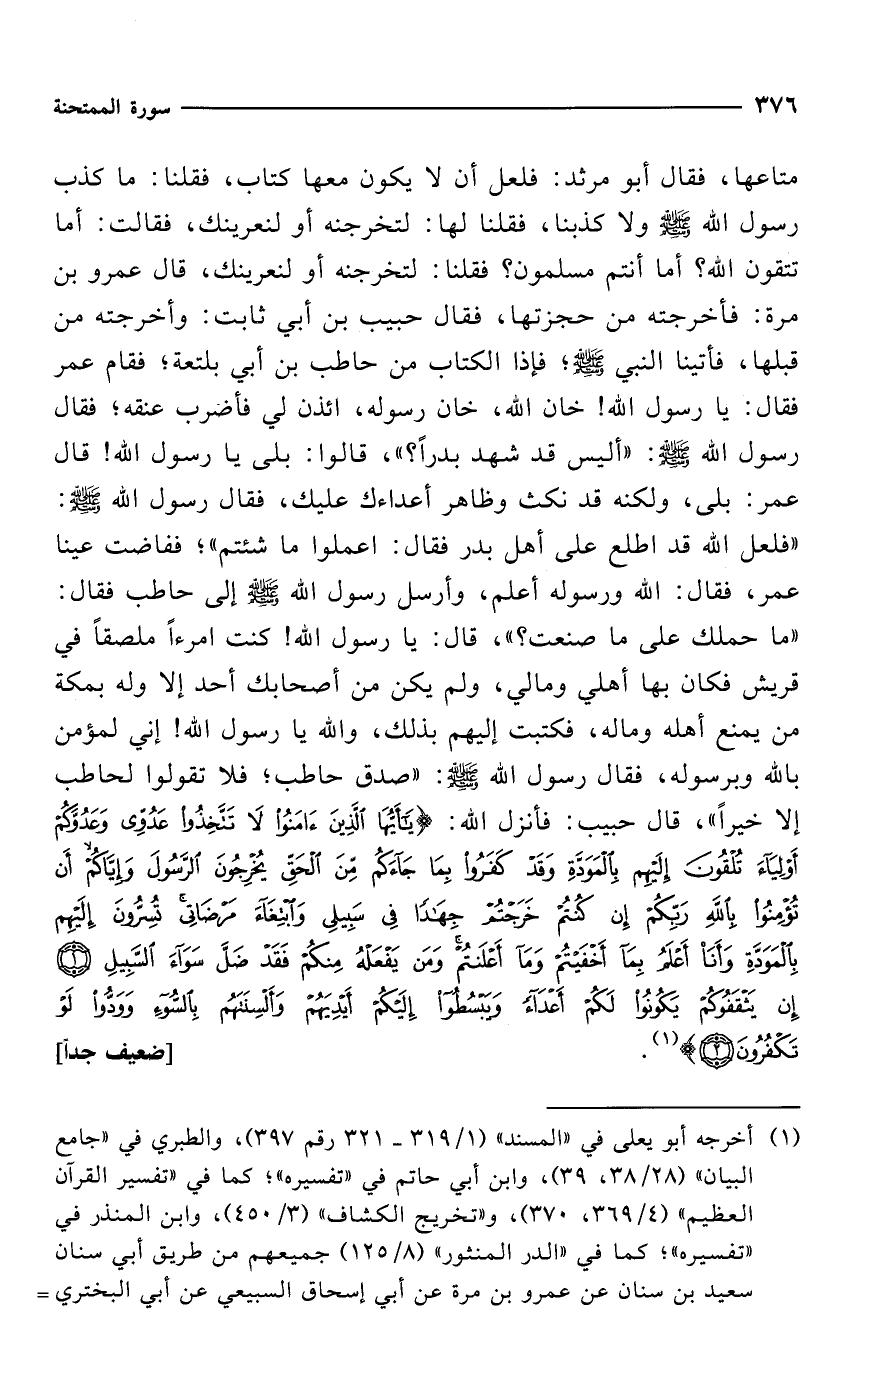 ٣٧٦ سورة الممتحنة
متاعها، فقال أبو مرثد: فلعل أن لا يكون معها كتاب، فقلنا: ما كذب
رسول الله ﷺ ولا كذبنا، فقلنا لها: لتخرجنه أو لنعرينك، فقالت: أما
تتقون الله؟ أما أنتم مسلمون؟ فقلنا: لتخرجنه أو لنعرينك، قال عمرو بن
مرة: فأخرجته من حجزتها، فقال حبيب بن أبي ثابت: وأخرجته من
قبلها، فأتينا النبي ﷺ؛ فإذا الكتاب من حاطب بن أبي بلتعة؛ فقام عمر
فقال: يا رسول الله! خان الله، خان رسوله، ائذن لي فأضرب عنقه؛ فقال
رسول الله ﷺ: «أليس قد شهد بدراً؟»، قالوا: بلى يا رسول الله! قال
عمر: بلى، ولكنه قد نكث وظاهر أعداءك عليك، فقال رسول الله ﷺ:
«فلعل الله قد اطلع على أهل بدر فقال: اعملوا ما شئتم»؛ ففاضت عينا
عمر، فقال: الله ورسوله أعلم، وأرسل رسول الله ﷺ إلى حاطب فقال:
«ما حملك على ما صنعت؟»، قال: يا رسول الله! كنت امرءاً ملصقاً في
قريش فكان بها أهلي ومالي، ولم يكن من أصحابك أحد إلا وله بمكة
من يمنع أهله وماله، فكتبت إليهم بذلك، والله يا رسول الله! إني لمؤمن
بالله وبرسوله، فقال رسول الله ﷺ: «صدق حاطب؛ فلا تقولوا لحاطب
إلا خيراً»، قال حبيب: فأنزل الله: ﴿يَٰٓأَيُّهَا ٱلَّذِينَ ءَامَنُوا۟ لَا تَتَّخِذُوا۟ عَدُوِّى وَعَدُوَّكُمْ
أَوْلِيَآءَ تُلْقُونَ إِلَيْهِم بِٱلْمَوَدَّةِ وَقَدْ كَفَرُوا۟ بِمَا جَآءَكُم مِّنَ ٱلْحَقِّ يُخْرِجُونَ ٱلرَّسُولَ وَإِيَّاكُمْ ۙ أَن
تُؤْمِنُوا۟ بِٱللَّهِ رَبِّكُمْ إِن كُنتُمْ خَرَجْتُمْ جِهَٰدًا فِى سَبِيلِى وَٱبْتِغَآءَ مَرْضَاتِى ۚ تُسِرُّونَ إِلَيْهِم
بِٱلْمَوَدَّةِ وَأَنَا۠ أَعْلَمُ بِمَآ أَخْفَيْتُمْ وَمَآ أَعْلَنتُمْ ۚ وَمَن يَفْعَلْهُ مِنكُمْ فَقَدْ ضَلَّ سَوَآءَ ٱلسَّبِيلِ ١
إِن يَثْقَفُوكُمْ يَكُونُوا۟ لَكُمْ أَعْدَآءً وَيَبْسُطُوٓا۟ إِلَيْكُمْ أَيْدِيَهُمْ وَأَلْسِنَتَهُم بِٱلسُّوٓءِ وَوَدُّوا۟ لَوْ
تَكْفُرُونَ ٢﴾(١). [ضعيف جداً]
(١) أخرجه أبو يعلى في «المسند» (١/ ٣١٩ ـ ٣٢١ رقم ٣٩٧)، والطبري في «جامع
البيان» (٢٨/ ٣٨، ٣٩)، وابن أبي حاتم في «تفسيره»؛ كما في «تفسير القرآن
العظيم» (٤/ ٣٦٩، ٣٧٠)، و«تخريج الكشاف» (٣/ ٤٥٠)، وابن المنذر في
«تفسيره»؛ كما في «الدر المنثور» (٨/ ١٢٥) جميعهم من طريق أبي سنان
سعيد بن سنان عن عمرو بن مرة عن أبي إسحاق السبيعي عن أبي البختري =